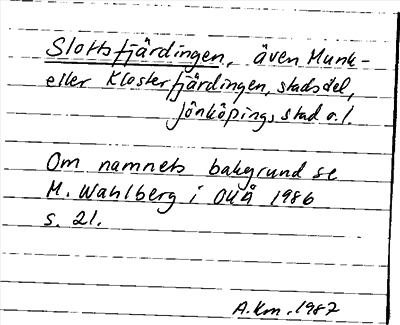 Slottsfjärdingen, även Munk-
eller Klosterfjärdingen, stadsdel,
Jönköpings stad o.l.
Om namnets bakgrund se
M. Wahlberg i OUÅ 1986
s. 21.
A.Km. 1987